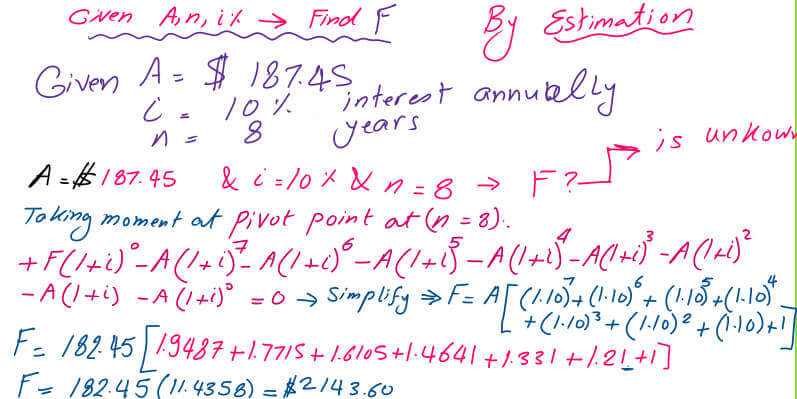 Given A,n,i% → Find F By Estimation
Given A = $ 187.45
i = 10 % interest annually
n = 8 years
is unkown
A = $ 187.45 & i = 10 % & n = 8 → F?
Taking moment at pivot point at (n = 8).
+ F(1+i)⁰ - A(1+i)⁷ - A(1+i)⁶ - A(1+i)⁵ - A(1+i)⁴ - A(1+i)³ - A(1+i)²
- A(1+i) - A(1+i)⁰ = 0 → Simplify ⇒ F = A[(1.10)⁷ + (1.10)⁶ + (1.10)⁵ + (1.10)⁴
+ (1.10)³ + (1.10)² + (1.10) + 1]
F = 182.45 [1.9487 + 1.7715 + 1.6105 + 1.4641 + 1.331 + 1.21 + 1]
F = 182.45 (11.4358) = $2143.60